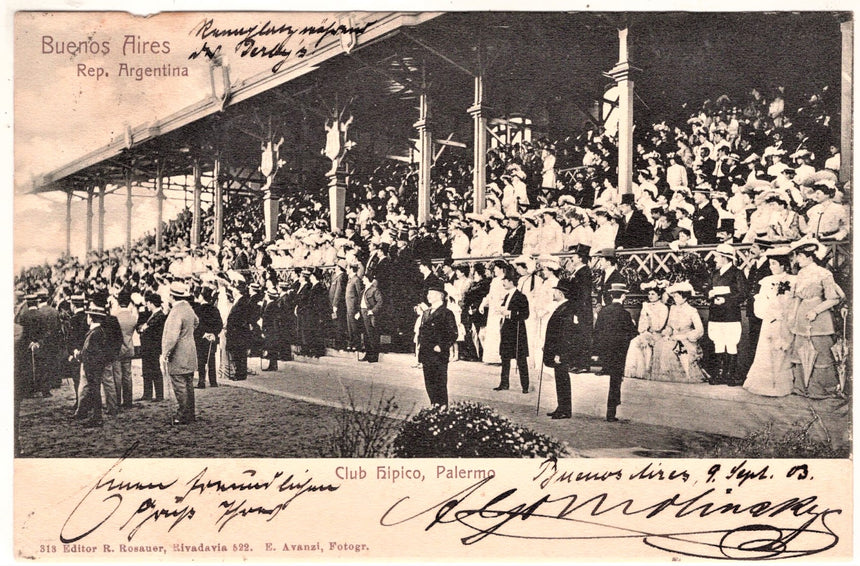 Buenos Aires
Rep. Argentina
Rennplatz während
des Derby's
Club Hipico, Palermo
Buenos Aires, 9. Sept. 03.
Einen freundlichen
Gruß Ihres
313 Editor R. Rosauer, Rivadavia 522. E. Avanzi, Fotogr.